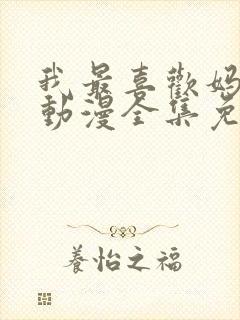 我最喜歡媽
動漫全集免
養怡之福